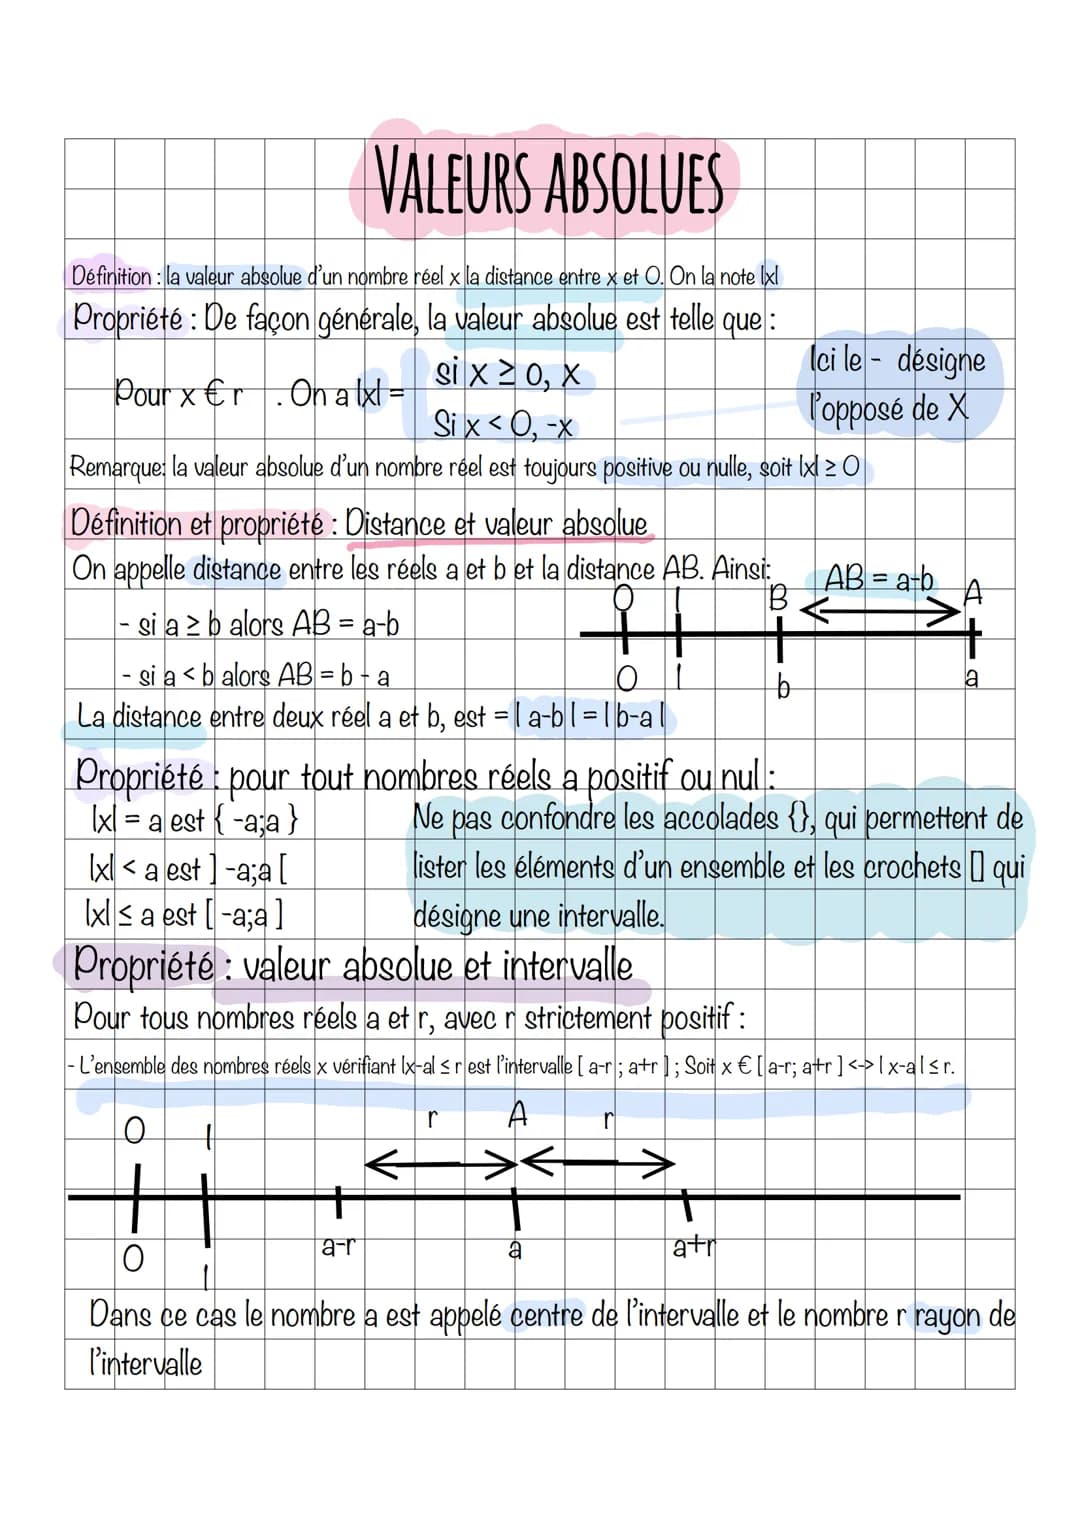 VALEURS ABSOLUES
Définition : la valeur absolue d'un nombre réel x la distance entre x et 0. On la note |x|
Propriété : De façon générale, la valeur absolue est telle que :
Pour x € r . On a |x| =
si x ≥ 0, x
Si x < 0, -x
Ici le - désigne
l'opposé de X
Remarque: la valeur absolue d'un nombre réel est toujours positive ou nulle, soit |x| ≥ 0
Définition et propriété : Distance et valeur absolue
On appelle distance entre les réels a et b et la distance AB. Ainsi:
- si a ≥ b alors AB = a-b
- si a < b alors AB = b - a
AB = a-b
O I B A
0 1 b a
La distance entre deux réel a et b, est = | a-b | = | b-a |
Propriété : pour tout nombres réels a positif ou nul :
|x| = a est { -a;a }
|x| < a est ] -a;a [
|x| ≤ a est [ -a;a ]
Ne pas confondre les accolades {}, qui permettent de
lister les éléments d'un ensemble et les crochets [] qui
désigne une intervalle.
Propriété : valeur absolue et intervalle
Pour tous nombres réels a et r, avec r strictement positif :
- L'ensemble des nombres réels x vérifiant |x-a| ≤ r est l'intervalle [ a-r ; a+r ] ; Soit x € [ a-r; a+r ] <-> | x-a | ≤ r.
O I r A r
0 1 a-r a a+r
Dans ce cas le nombre a est appelé centre de l'intervalle et le nombre r rayon de
l'intervalle